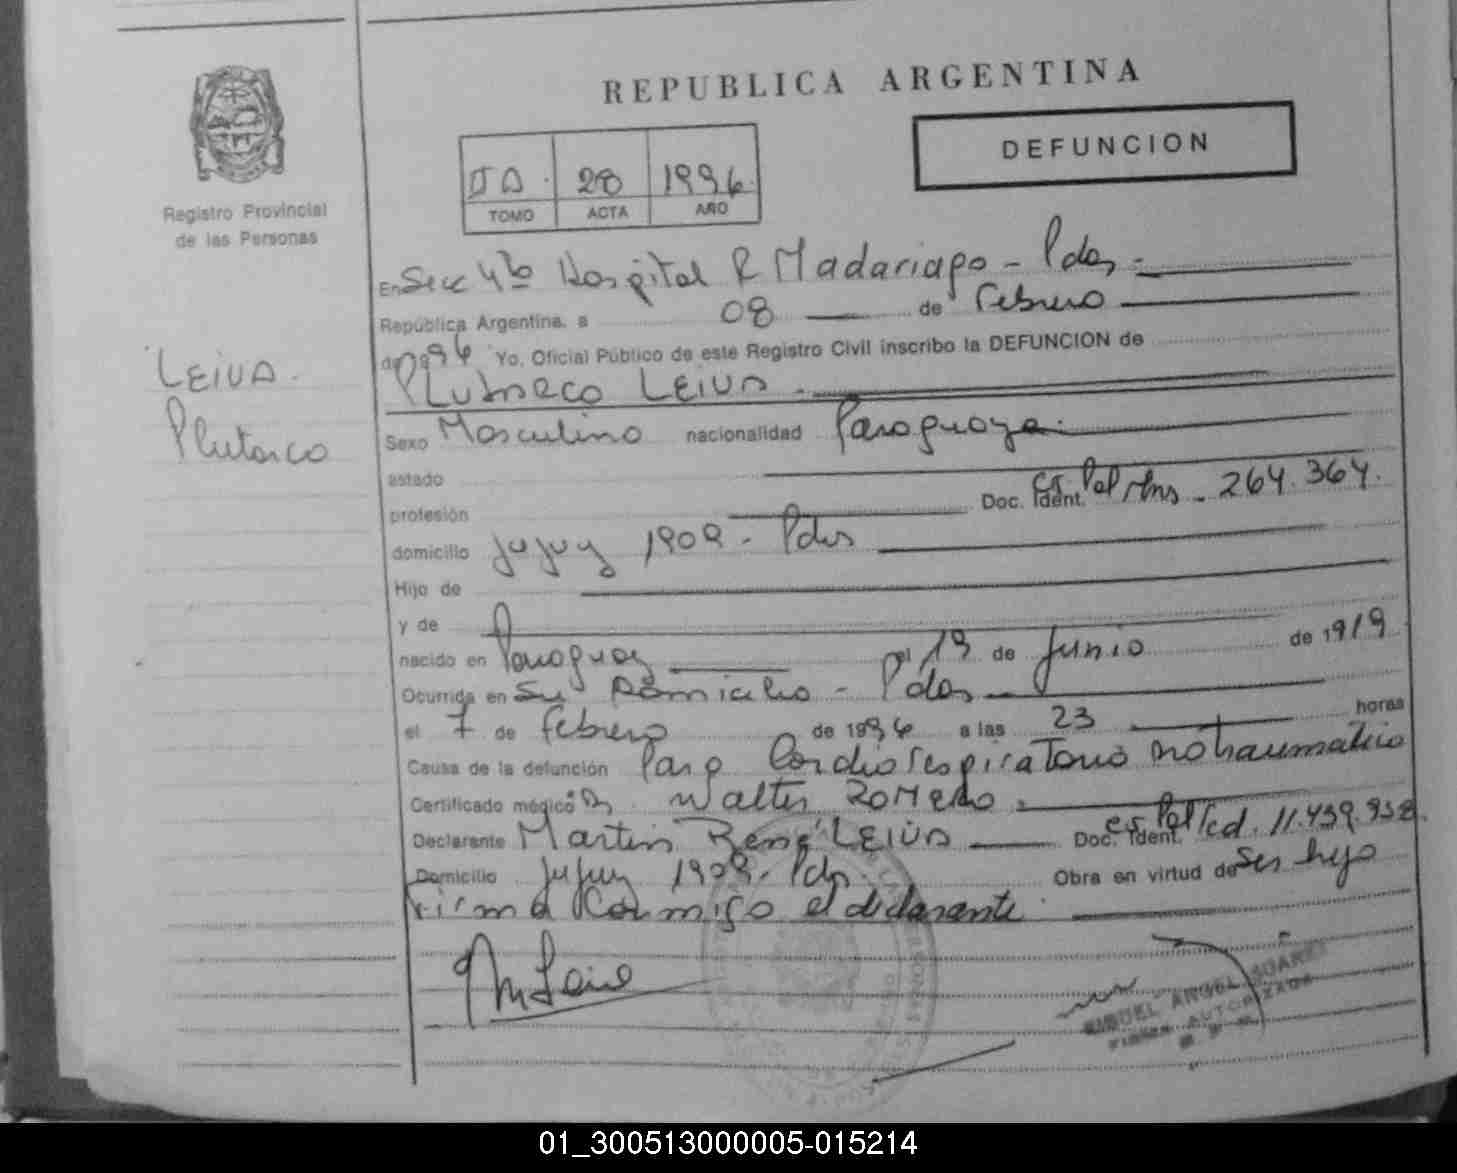 REPUBLICA ARGENTINA
DEFUNCION
28 1996
TOMO ACTA AÑO
Registro Provincial
de las Personas
En Secc 4ta Hospital R Madariaga - Pdas -
República Argentina, a 08 de Febrero
de 1996 Yo, Oficial Público de este Registro Civil inscribo la DEFUNCION de
LEIVA.
Plutarco
Plutarco LEIVA
Sexo Masculino nacionalidad Paraguaya.
estado
profesión Doc. Ident. 264.364.
domicilio Jujuy 1909 - Pdas
Hijo de
y de
nacido en Paraguay el 19 de Junio de 1919
Ocurrida en Su Domicilio - Pdas
el 7 de Febrero de 1996 a las 23 horas
Causa de la defunción Paro Cardiorespiratorio no traumatico
Certificado médico Dr. Walter Romero
Declarante Martin René LEIVA Doc. Ident. 11.439.938.
Domicilio Jujuy 1909 - Pdas. Obra en virtud de Ser hijo
Firma Conmigo el declarante
M Leiva
MIGUEL ANGEL SUAREZ
FIRMA AUTORIZADA
01_300513000005-015214